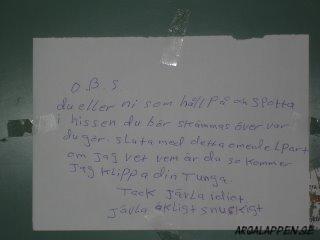 O.B.S.
du eller ni som håll på och spotta
i hissen du bör skämmas över var
du gör. sluta med detta omedelpart
om jag vet vem är du så kommer
jag klippa din Tunga.
Tack jävla idiot
jävla äkligt snuskigt
ARGALAPPEN.SE